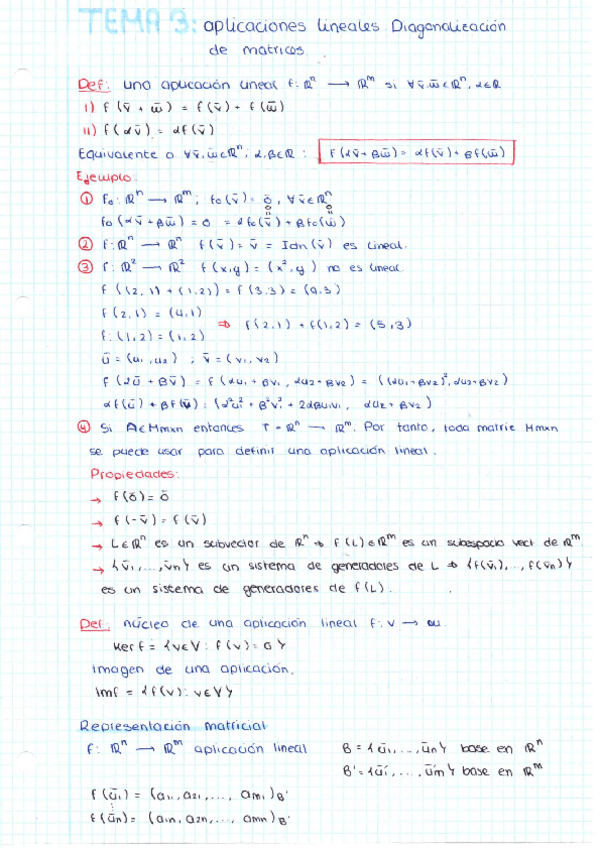 TEMA 3: aplicaciones lineales. Diagonalización
de matrices.
Def: una aplicación lineal f: ℝⁿ → ℝᵐ si ∀ v̄, w̄ ∈ ℝⁿ, α ∈ ℝ
i) f (v̄ + w̄) = f(v̄) + f(w̄)
ii) f(αv̄) = αf(v̄)
Equivalente a ∀v̄, w̄ ∈ ℝⁿ; α, β ∈ ℝ : f(αv̄ + βw̄) = αf(v̄) + βf(w̄)
Ejemplo:
① f₀: ℝⁿ → ℝᵐ; f₀(v̄) = ō, ∀v̄ ∈ ℝⁿ
f₀(αv̄ + βw̄) = 0 = αf₀(v̄) + βf₀(w̄)
② f: ℝⁿ → ℝⁿ f(v̄) = v̄ = Idn(v̄) es lineal.
③ f: ℝ² → ℝ² f(x,y) = (x², y) no es lineal
f ((2,1) + (1,2)) = f(3,3) = (9,3)
f(2,1) = (4,1)
⇒ f(2,1) + f(1,2) = (5,3)
f: (1,2) = (1,2)
ū = (u₁, u₂) ; v̄ = (v₁, v₂)
f (αū + βv̄) = f(αu₁ + βv₁, αu₂ + βv₂) = ((αu₁ + βv₂)², αu₂ + βv₂)
αf(ū) + βf(v̄) : (α²u₁² + β²v₁² + 2αβu₁v₁, αu₂ + βv₂)
④ Si A ∈ Mmxn entonces T = ℝⁿ → ℝᵐ. Por tanto, toda matriz Mmxn
se puede usar para definir una aplicación lineal.
Propiedades:
→ f(ō) = ō
→ f(-v̄) = f(v̄)
→ L ∈ ℝⁿ es un subvector de ℝⁿ ⇒ f(L) ∈ ℝᵐ es un subespacio vect de ℝᵐ.
→ {v̄₁, ..., v̄n} es un sistema de generadores de L ⇒ {f(v̄₁), .., f(v̄n)}
es un sistema de generadores de f(L).
Def: núcleo de una aplicación lineal f: V → W.
Ker f = {v ∈ V : f(v) = 0}
Imagen de una aplicación.
Imf = {f(v): v ∈ V}
Representación matricial
f: ℝⁿ → ℝᵐ aplicación lineal B = {ū₁, ..., ūn} base en ℝⁿ
B' = {ū₁', ..., ūm'} base en ℝᵐ
f(ū₁) = (a₁₁, a₂₁, ..., am₁)B'
⋮
f(ūn) = (a₁n, a₂n, ..., amn)B'